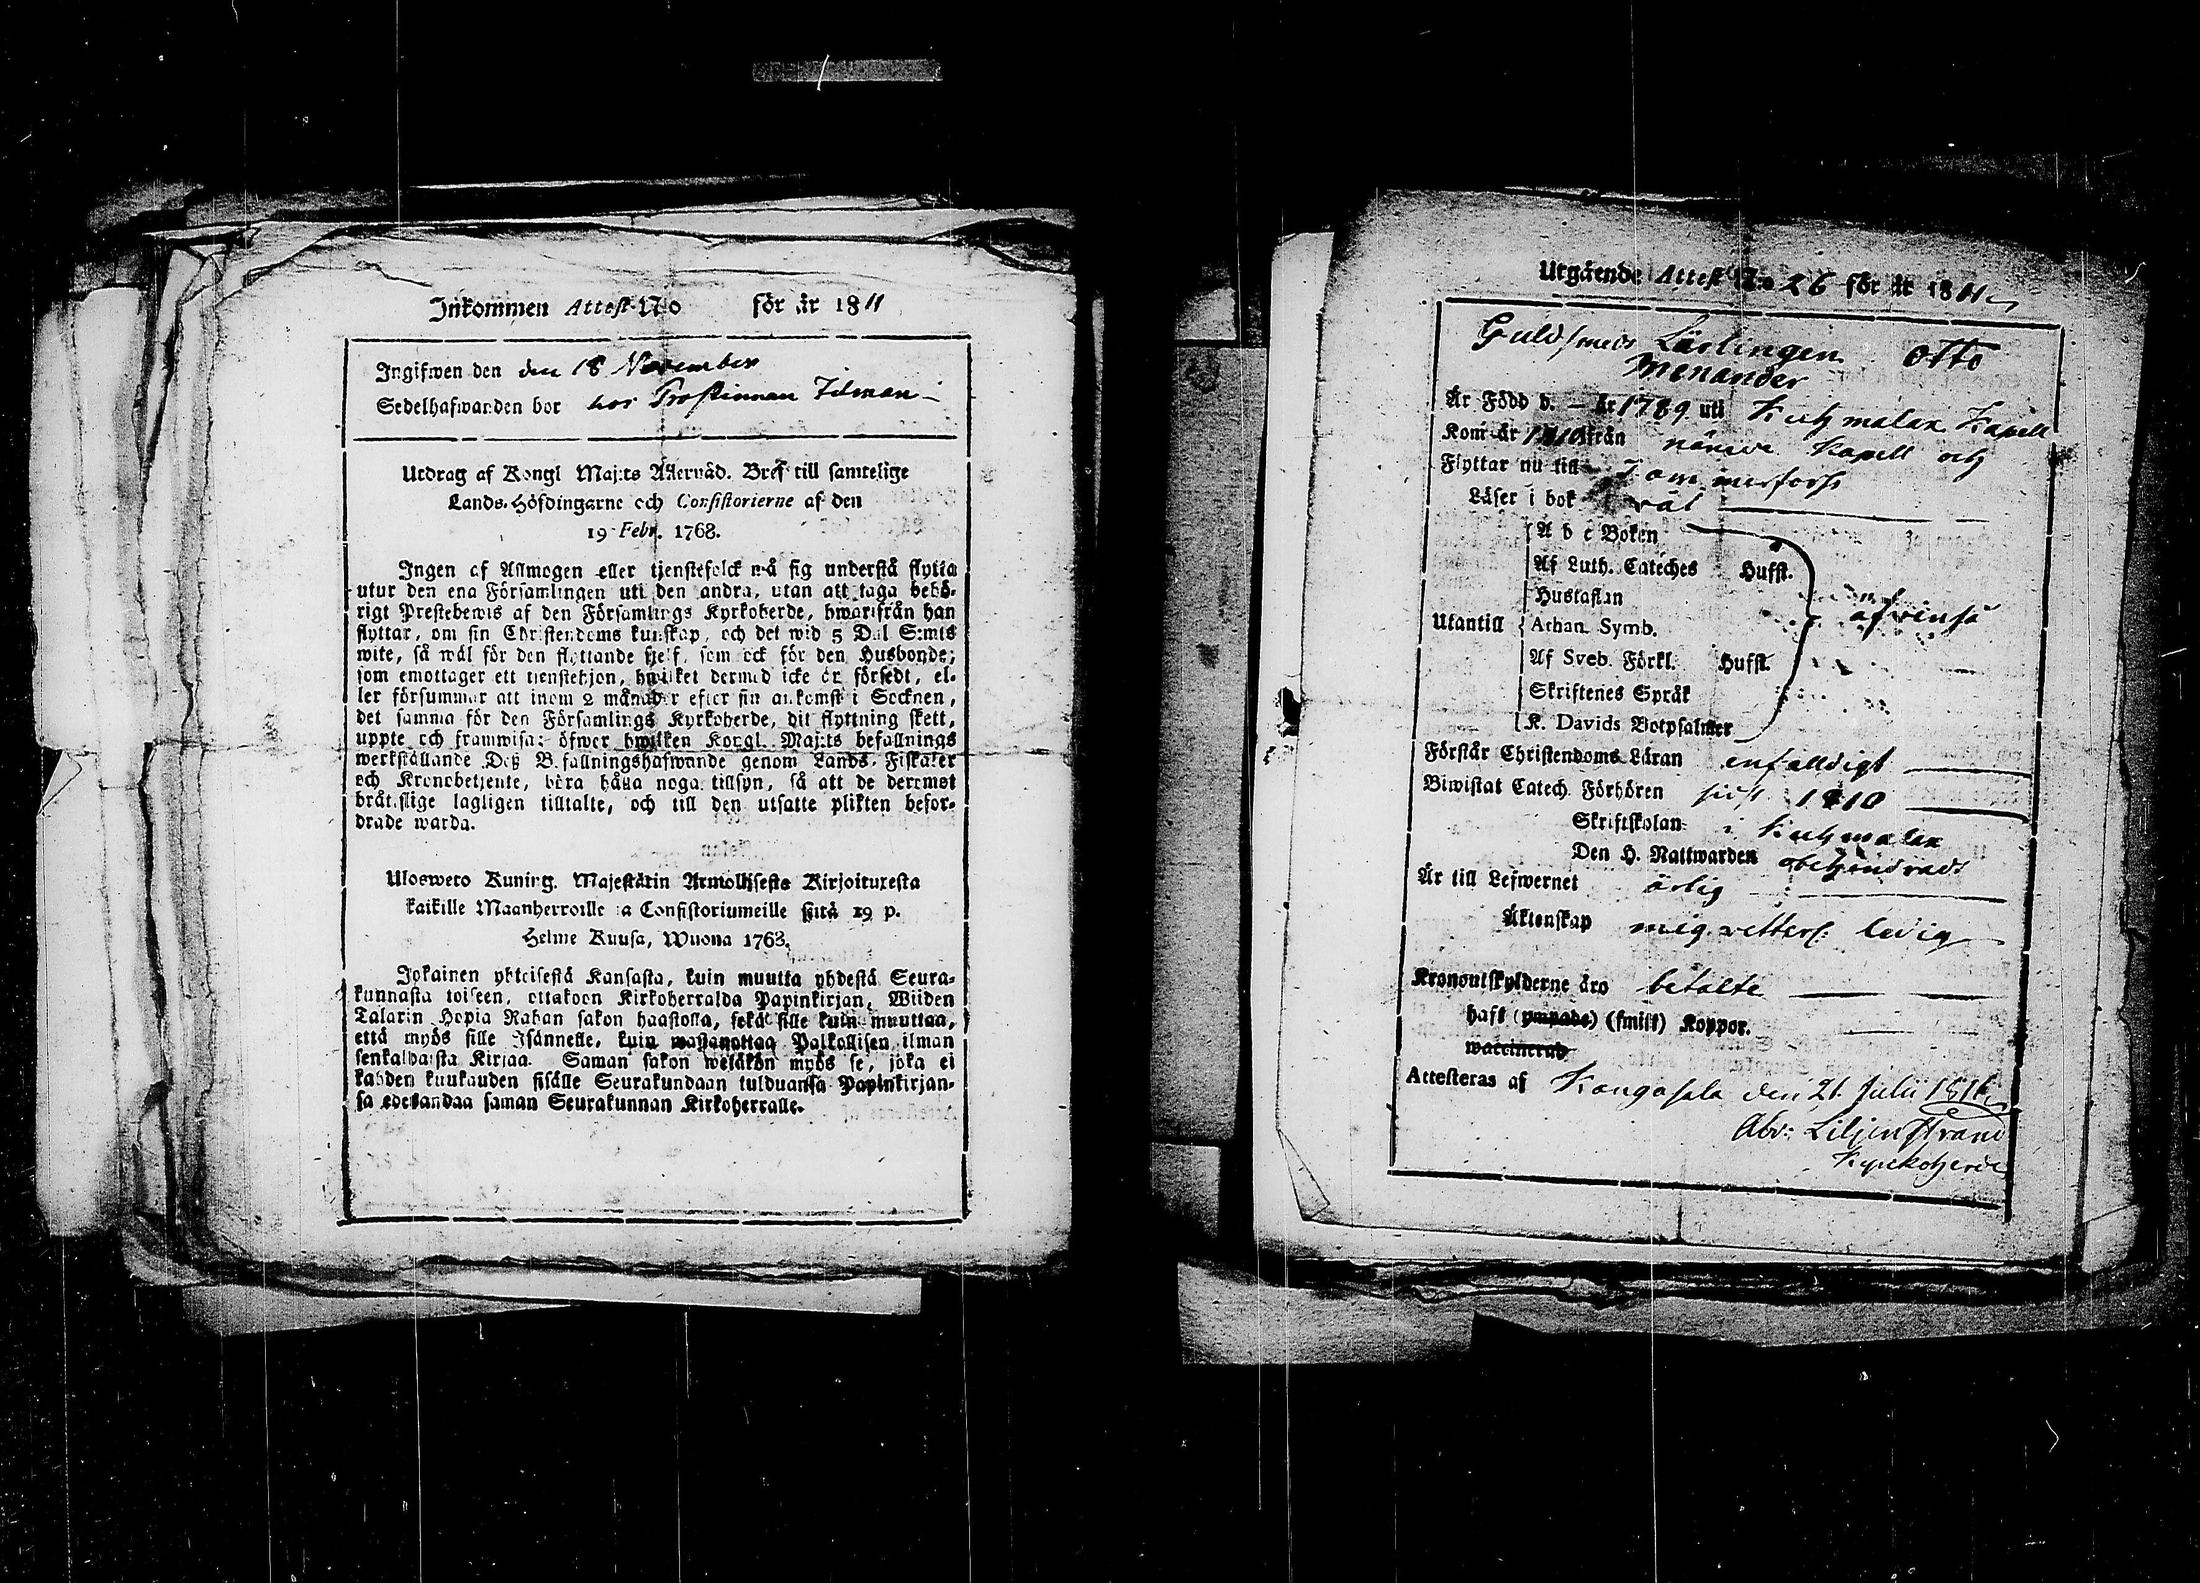 Inkommen Attest No för år 1811
Ingifwen den den 18 November
Sedelhafwanden bor hos Prostinnan Idman
Utdrag af Kongl Maj:ts Allernåd. Bref till samtelige
Lands-Höfdingarne och Consistorierne af den
19 Febr. 1768.
Ingen af Allmogen eller tjenstefolck må sig understå flytta
utur den ena Församlingen uti den andra, utan att taga behö-
rigt Prestebewis af den Församlings Kyrkoherde, hwarifrån han
flyttar, om sin Christendoms kunskap, och det wid 5 Dal S:mts
wite, så wäl för den flyttande sjelf, som ock för den Husbonde,
som emottager ett tjenstehjon, hwilket dermed icke är försedt, el-
ler försummar att inom 2 månader efter sin ankomst i Socknen,
det samma för den Församlings Kyrkoherde, dit flyttning skett,
uppte och framwisa; öfwer hwilken Kongl. Maj:ts befallnings
werkställande Deß Befallningshafwande genom Lands-Fiskaler
och Kronobetjente, böra hålla noga tillsyn, så att de deremot
bråtslige lagligen tilltalte, och till den utsatte plikten befor-
drade warda.
Ulosweto Kuning. Majestätin Armollisesta Kirjoituxesta
kaikille Maanherroille ja Consistoriumeille siitä 19 p.
Helme Kuusa, Wuona 1763.
Jokainen yhteisestä Kansasta, kuin muutta yhdestä Seura-
kunnasta toiseen, ottakoon Kirkoherralda Papinkirjan, Wiiden
Talarin Hopia Rahan sakon haastolla, sekä sille kuin muuttaa,
että myös sille Isännelle, kuin wastanottaa Palkollisen ilman
senkaldaista Kirjaa. Saman sakon weläkön myös se, joka ei
kahden kuukauden sisälle Seurakundaan tulduansa Papinkirjan-
sa edesandaa saman Seurakunnan Kirkoherralle.
Utgående Attest No 26 för år 1811
Guldsmeds Lärlingen Otto
Menander
Är Född d. – år 1789 uti Kuhmalax Kapell
Kom år 1810 från nämde Kapell och
Flyttar nu till Tammerfors
Läser i bok väl
A b c Boken
Af Luth. Cateches Hufst.
Hustaflan
Utantill Athan. Symb. afvensä
Af Sveb. Förkl. Hufst.
Skriftenes Språk
K. Davids Botpsalmer
Förstår Christendoms Läran enfalldigt
Biwistat Catech. Förhören sidst 1810
Skriftskolan i Kuhmalax
Den H. Nattwarden obehindradt
Är till Lefwernet ärlig
Äktenskap mig vetterl: ledig
Kronoutskylderne äro betalte
haft (ympade) (smitt) Koppor.
waccinerad
Attesteras af Kangasala den 21. Julii 1811
Abr: Liljenstrand
Kyrckoherde